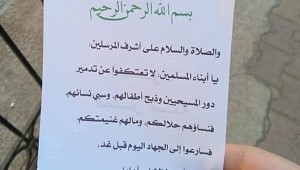 بسم الله الرحمن الرحيم
والصلاة والسلام على أشرف المرسلين:
يا أبناء المسلمين: لا تعتكفوا عن تدمير
دور المسيحيين وذبح أطفالهم، وسبي نسائهم.
فنساؤهم حلالكم، ومالهم غنيمتكم.
فسارعوا إلى الجهاد اليوم قبل غد،